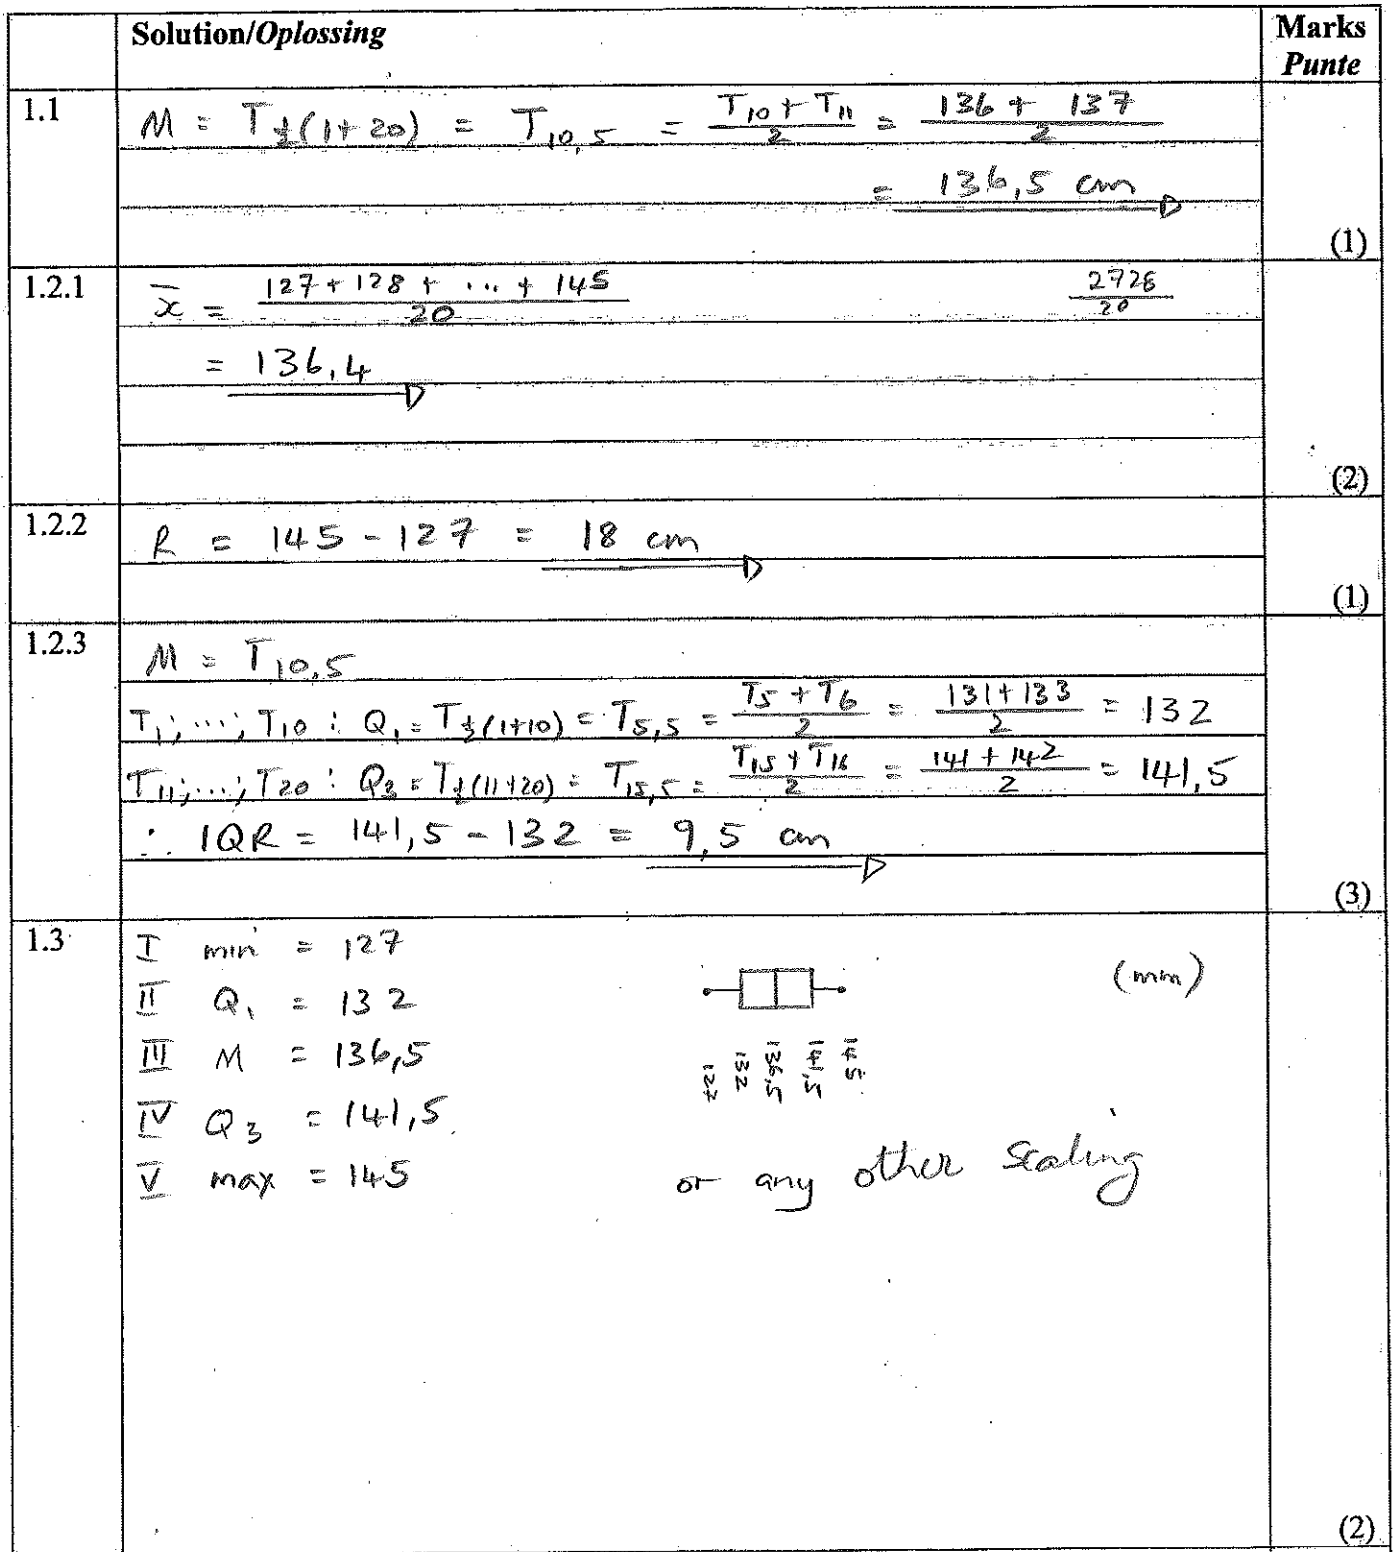 Solution/Oplossing
Marks
Punte
1.1
M = T ½(1+20) = T 10,5 = (T10 + T11)/2 = (136 + 137)/2
= 136,5 cm
(1)
1.2.1
x̄ = (127 + 128 + ... + 145)/20
2728/20
= 136,4
(2)
1.2.2
R = 145 - 127 = 18 cm
(1)
1.2.3
M = T10,5
T1; ...; T10 : Q1 = T½(1+10) = T5,5 = (T5 + T6)/2 = (131 + 133)/2 = 132
T11; ...; T20 : Q3 = T½(11+20) = T15,5 = (T15 + T16)/2 = (141 + 142)/2 = 141,5
∴ IQR = 141,5 - 132 = 9,5 cm
(3)
1.3
I min = 127
(mm)
II Q1 = 132
III M = 136,5
127 132 136,5 141,5 145
IV Q3 = 141,5
V max = 145
or any other scaling
(2)